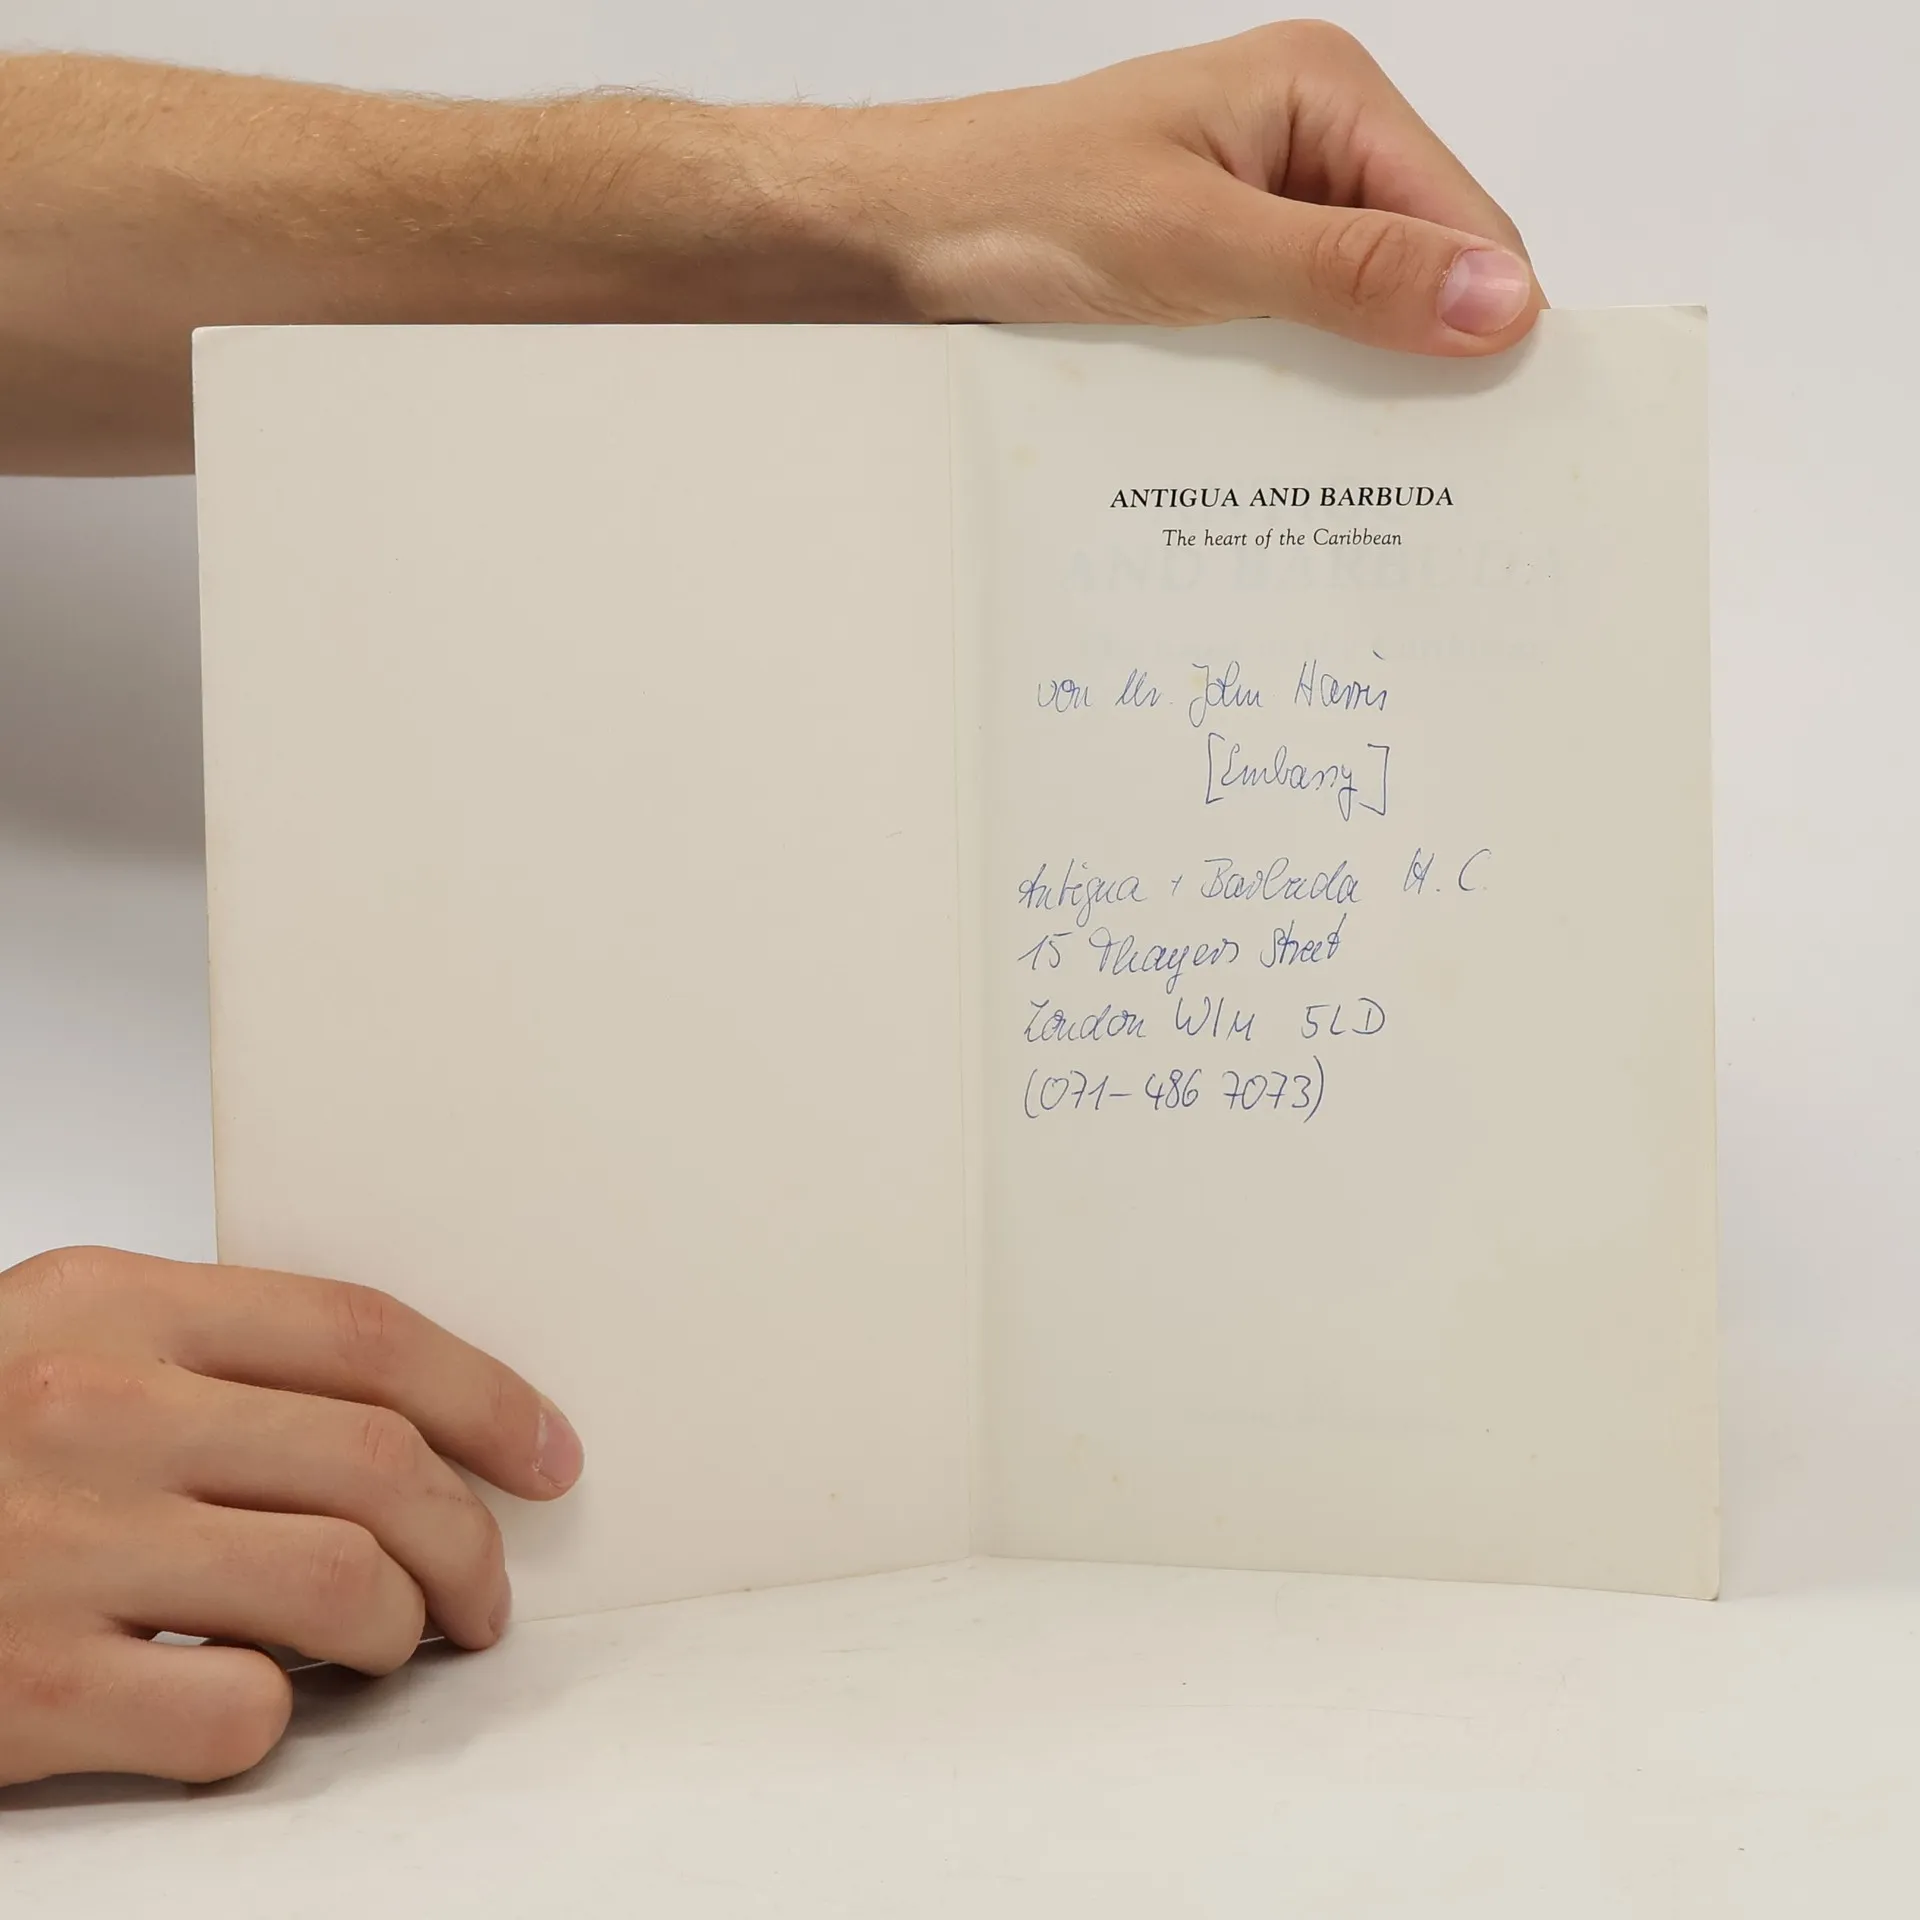 ANTIGUA AND BARBUDA
The heart of the Caribbean
von Mr. John Harris
[Embassy]
Antigua + Barbuda H. C.
15 Thayers Street
London W1M 5LD
(071-486 7073)